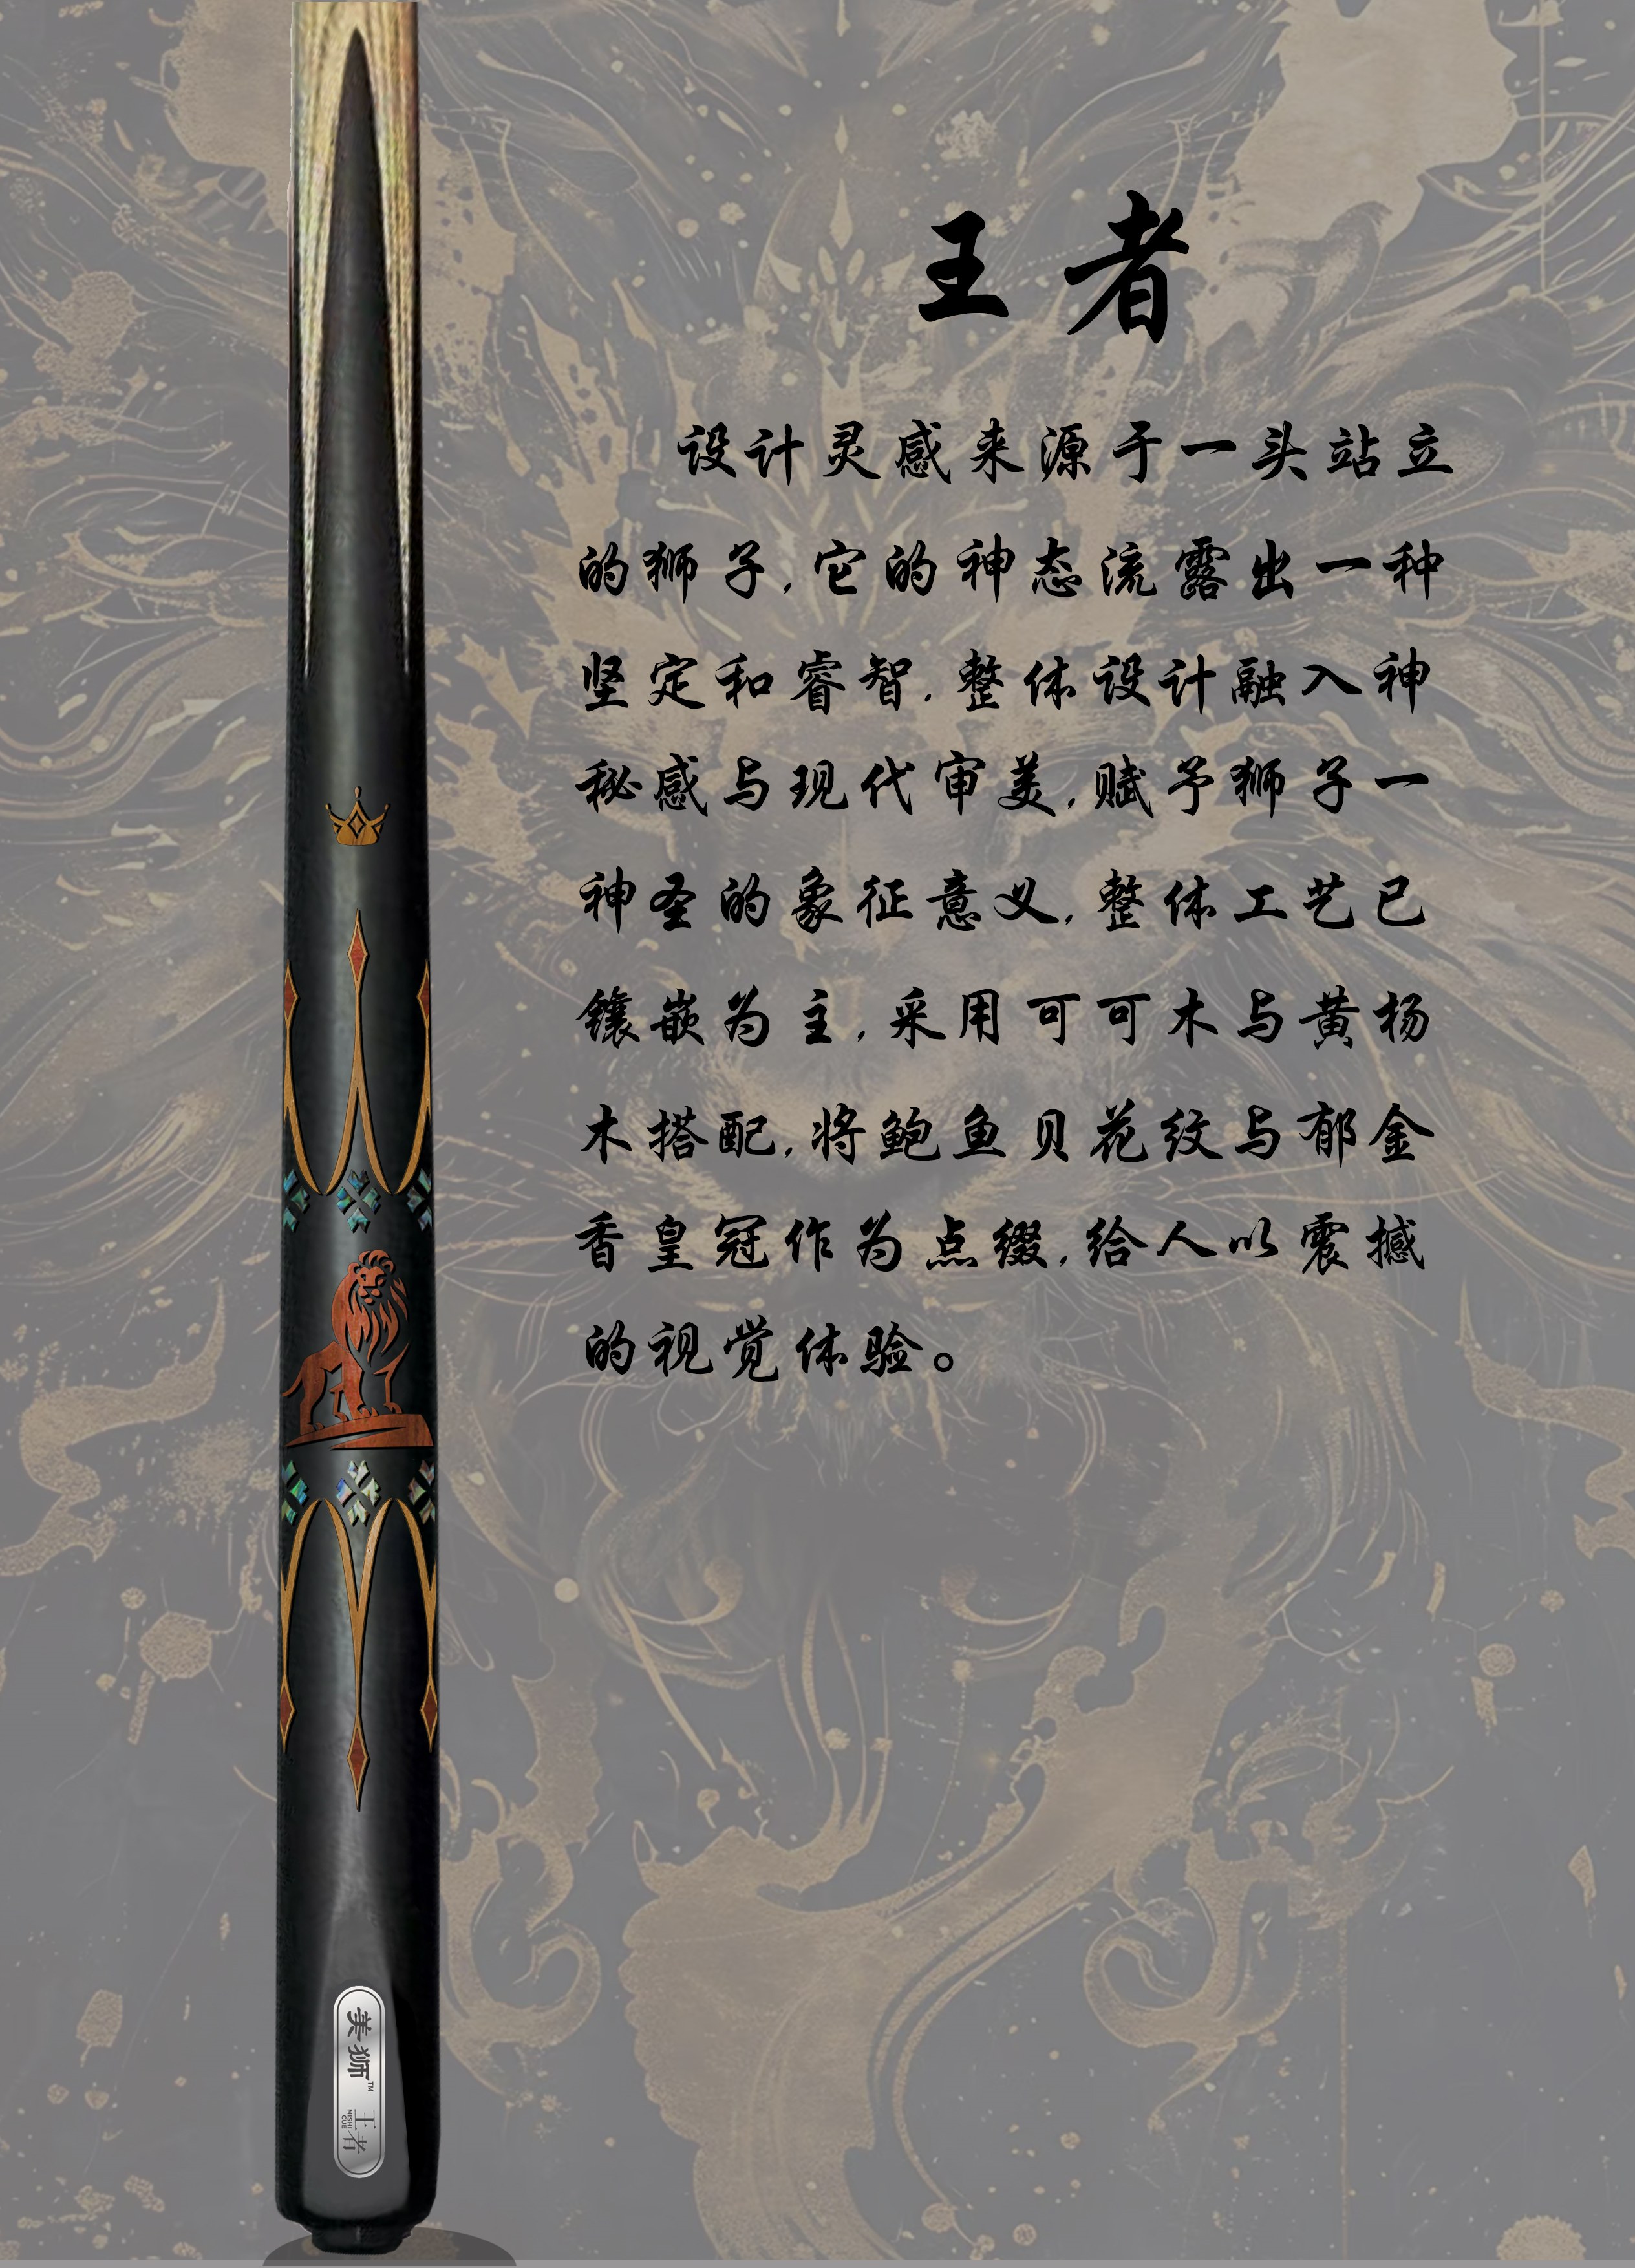 王者
设计灵感来源于一头站立
的狮子,它的神态流露出一种
坚定和睿智.整体设计融入神
秘感与现代审美,赋予狮子一
神圣的象征意义,整体工艺已
镶嵌为主,采用可可木与黄杨
木搭配,将鲍鱼贝花纹与郁金
香皇冠作为点缀,给人以震撼
的视觉体验。
美狮™
王者
MISHI
CUE